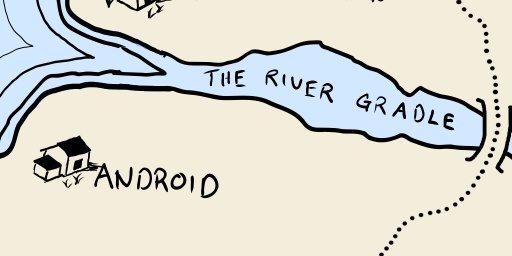 THE RIVER GRADLE
ANDROID